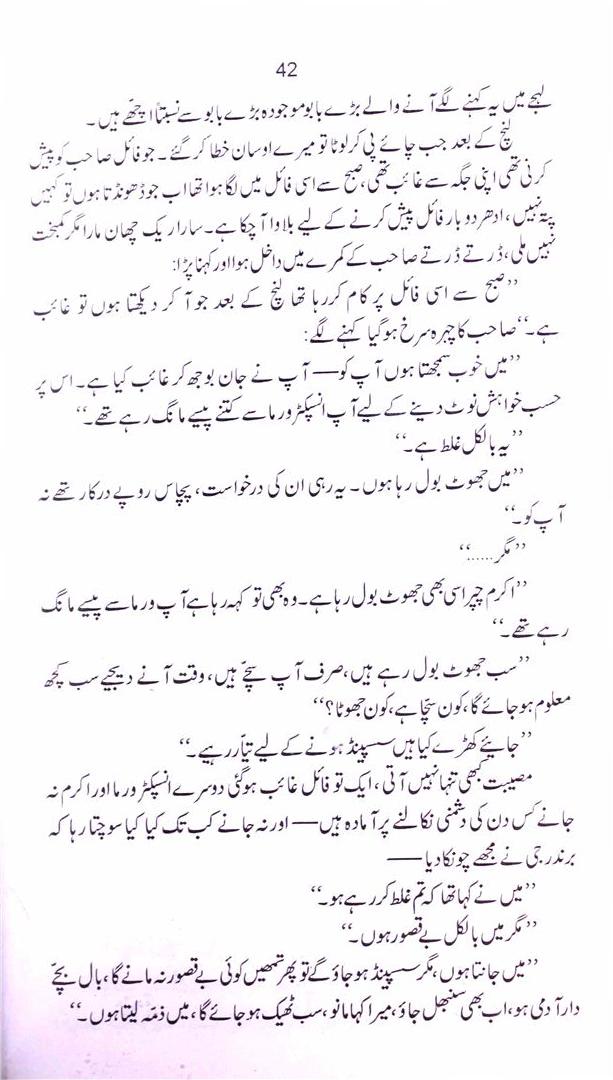 42
لہجے میں یہ کہنے لگے آنے والے بڑے بابو موجودہ بڑے بابو سے نسبتاً اچھّے ہیں۔
لنچ کے بعد جب چائے پی کر لوٹا تو میرے اوسان خطا کر گئے۔ جو فائل صاحب کو پیش
کرنی تھی اپنی جگہ سے غائب تھی، صبح سے اسی فائل میں لگا ہوا تھا اب جو ڈھونڈتا ہوں تو کہیں
پتہ نہیں، ادھر دو بار فائل پیش کرنے کے لیے بلاوا آ چکا ہے۔ سارا ریک چھان مارا مگر کمبخت
نہیں ملی، ڈرتے ڈرتے صاحب کے کمرے میں داخل ہوا اور کہنا پڑا:
”صبح سے اسی فائل پر کام کر رہا تھا لنچ کے بعد جو آ کر دیکھتا ہوں تو غائب
ہے۔“ صاحب کا چہرہ سرخ ہو گیا کہنے لگے:
”میں خوب سمجھتا ہوں آپ کو—— آپ نے جان بوجھ کر غائب کیا ہے۔ اس پر
حسب خواہش نوٹ دینے کے لیے آپ انسپکٹر ورما سے کتنے پیسے مانگ رہے تھے۔“
”یہ بالکل غلط ہے۔“
”میں جھوٹ بول رہا ہوں۔ یہ رہی ان کی درخواست، پچاس روپے درکار تھے نہ
آپ کو۔“
”مگر.....“
”اکرم چپراسی بھی جھوٹ بول رہا ہے۔ وہ بھی تو کہہ رہا ہے آپ ورما سے پیسے مانگ
رہے تھے۔“
”سب جھوٹ بول رہے ہیں، صرف آپ سچّے ہیں، وقت آنے دیجیے سب کچھ
معلوم ہو جائے گا، کون سچّا ہے، کون جھوٹا؟“
”جائیے کھڑے کیا ہیں سسپینڈ ہونے کے لیے تیاّر رہیے۔“
مصیبت کبھی تنہا نہیں آتی، ایک تو فائل غائب ہو گئی دوسرے انسپکٹر ورما اور اکرم نہ
جانے کس دن کی دشمنی نکالنے پر آمادہ ہیں—— اور نہ جانے کب تک کیا کیا سوچتا رہا کہ
برندر جی نے مجھے چونکا دیا——
”میں نے کہا تھا کہ تم غلط کر رہے ہو۔“
”مگر میں بالکل بے قصور ہوں۔“
”میں جانتا ہوں، مگر سسپینڈ ہو جاؤ گے تو پھر تمھیں کوئی بے قصور نہ مانے گا، بال بچّے
دار آدمی ہو، اب بھی سنبھل جاؤ، میرا کہا مانو، سب ٹھیک ہو جائے گا، میں ذمّہ لیتا ہوں۔“